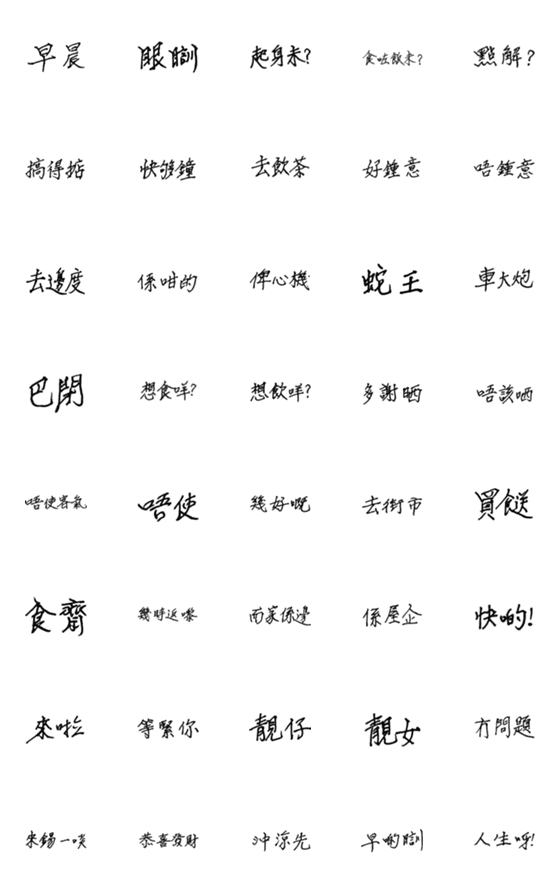 早晨 眼瞓 起身未? 食咗飯未? 點解?
搞得掂 快够鐘 去飲茶 好鍾意 唔鍾意
去邊度 係咁的 俾心機 蛇王 車大炮
巴閉 想食咩? 想飲咩? 多謝晒 唔該晒
唔使客氣 唔使 幾好嘅 去街市 買餸
食齋 幾時返嚟 而家係邊 係屋企 快啲!
來啦 等緊你 靚仔 靚女 冇問題
來錫一啖 恭喜發財 沖涼先 早啲瞓 人生呀!